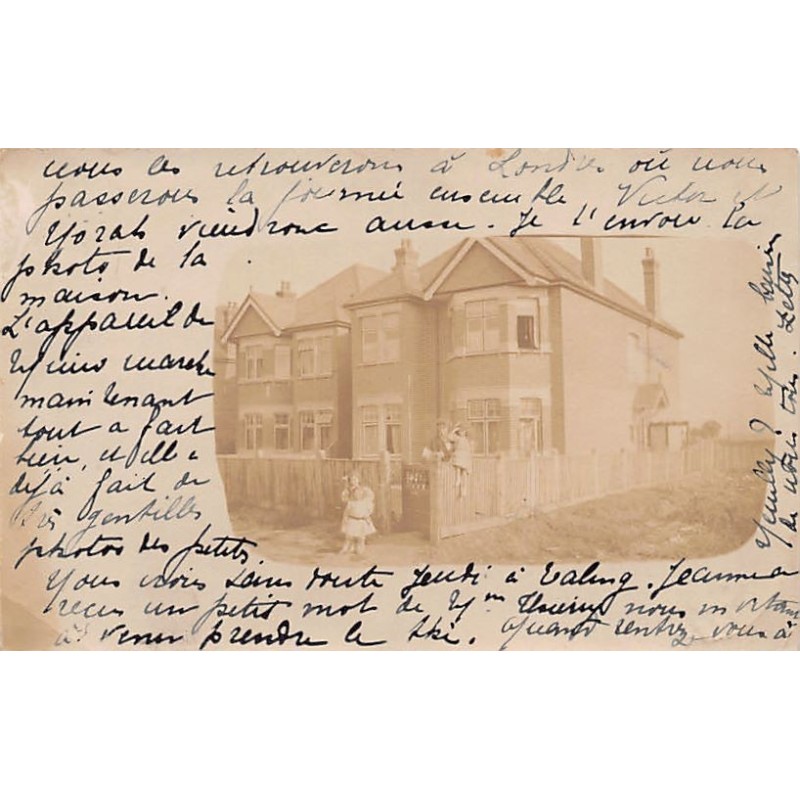 nous les retrouverons à Londres où nous
passerons la journée ensemble, Victor et
Norah viendront aussi. Je t'envoie la
photo de la
maison.
L'appareil de
marche
maintenant
tout à fait
bien, et elle a
déjà fait de
très gentilles
photos des petits.
Nous irons sans doute Jeudi à Ealing. Jeanne a
reçu un petit mot de Mme nous invitant
à venir prendre le thé. Quand rentrez-vous à
Neuilly ? Mille
de nous tous.